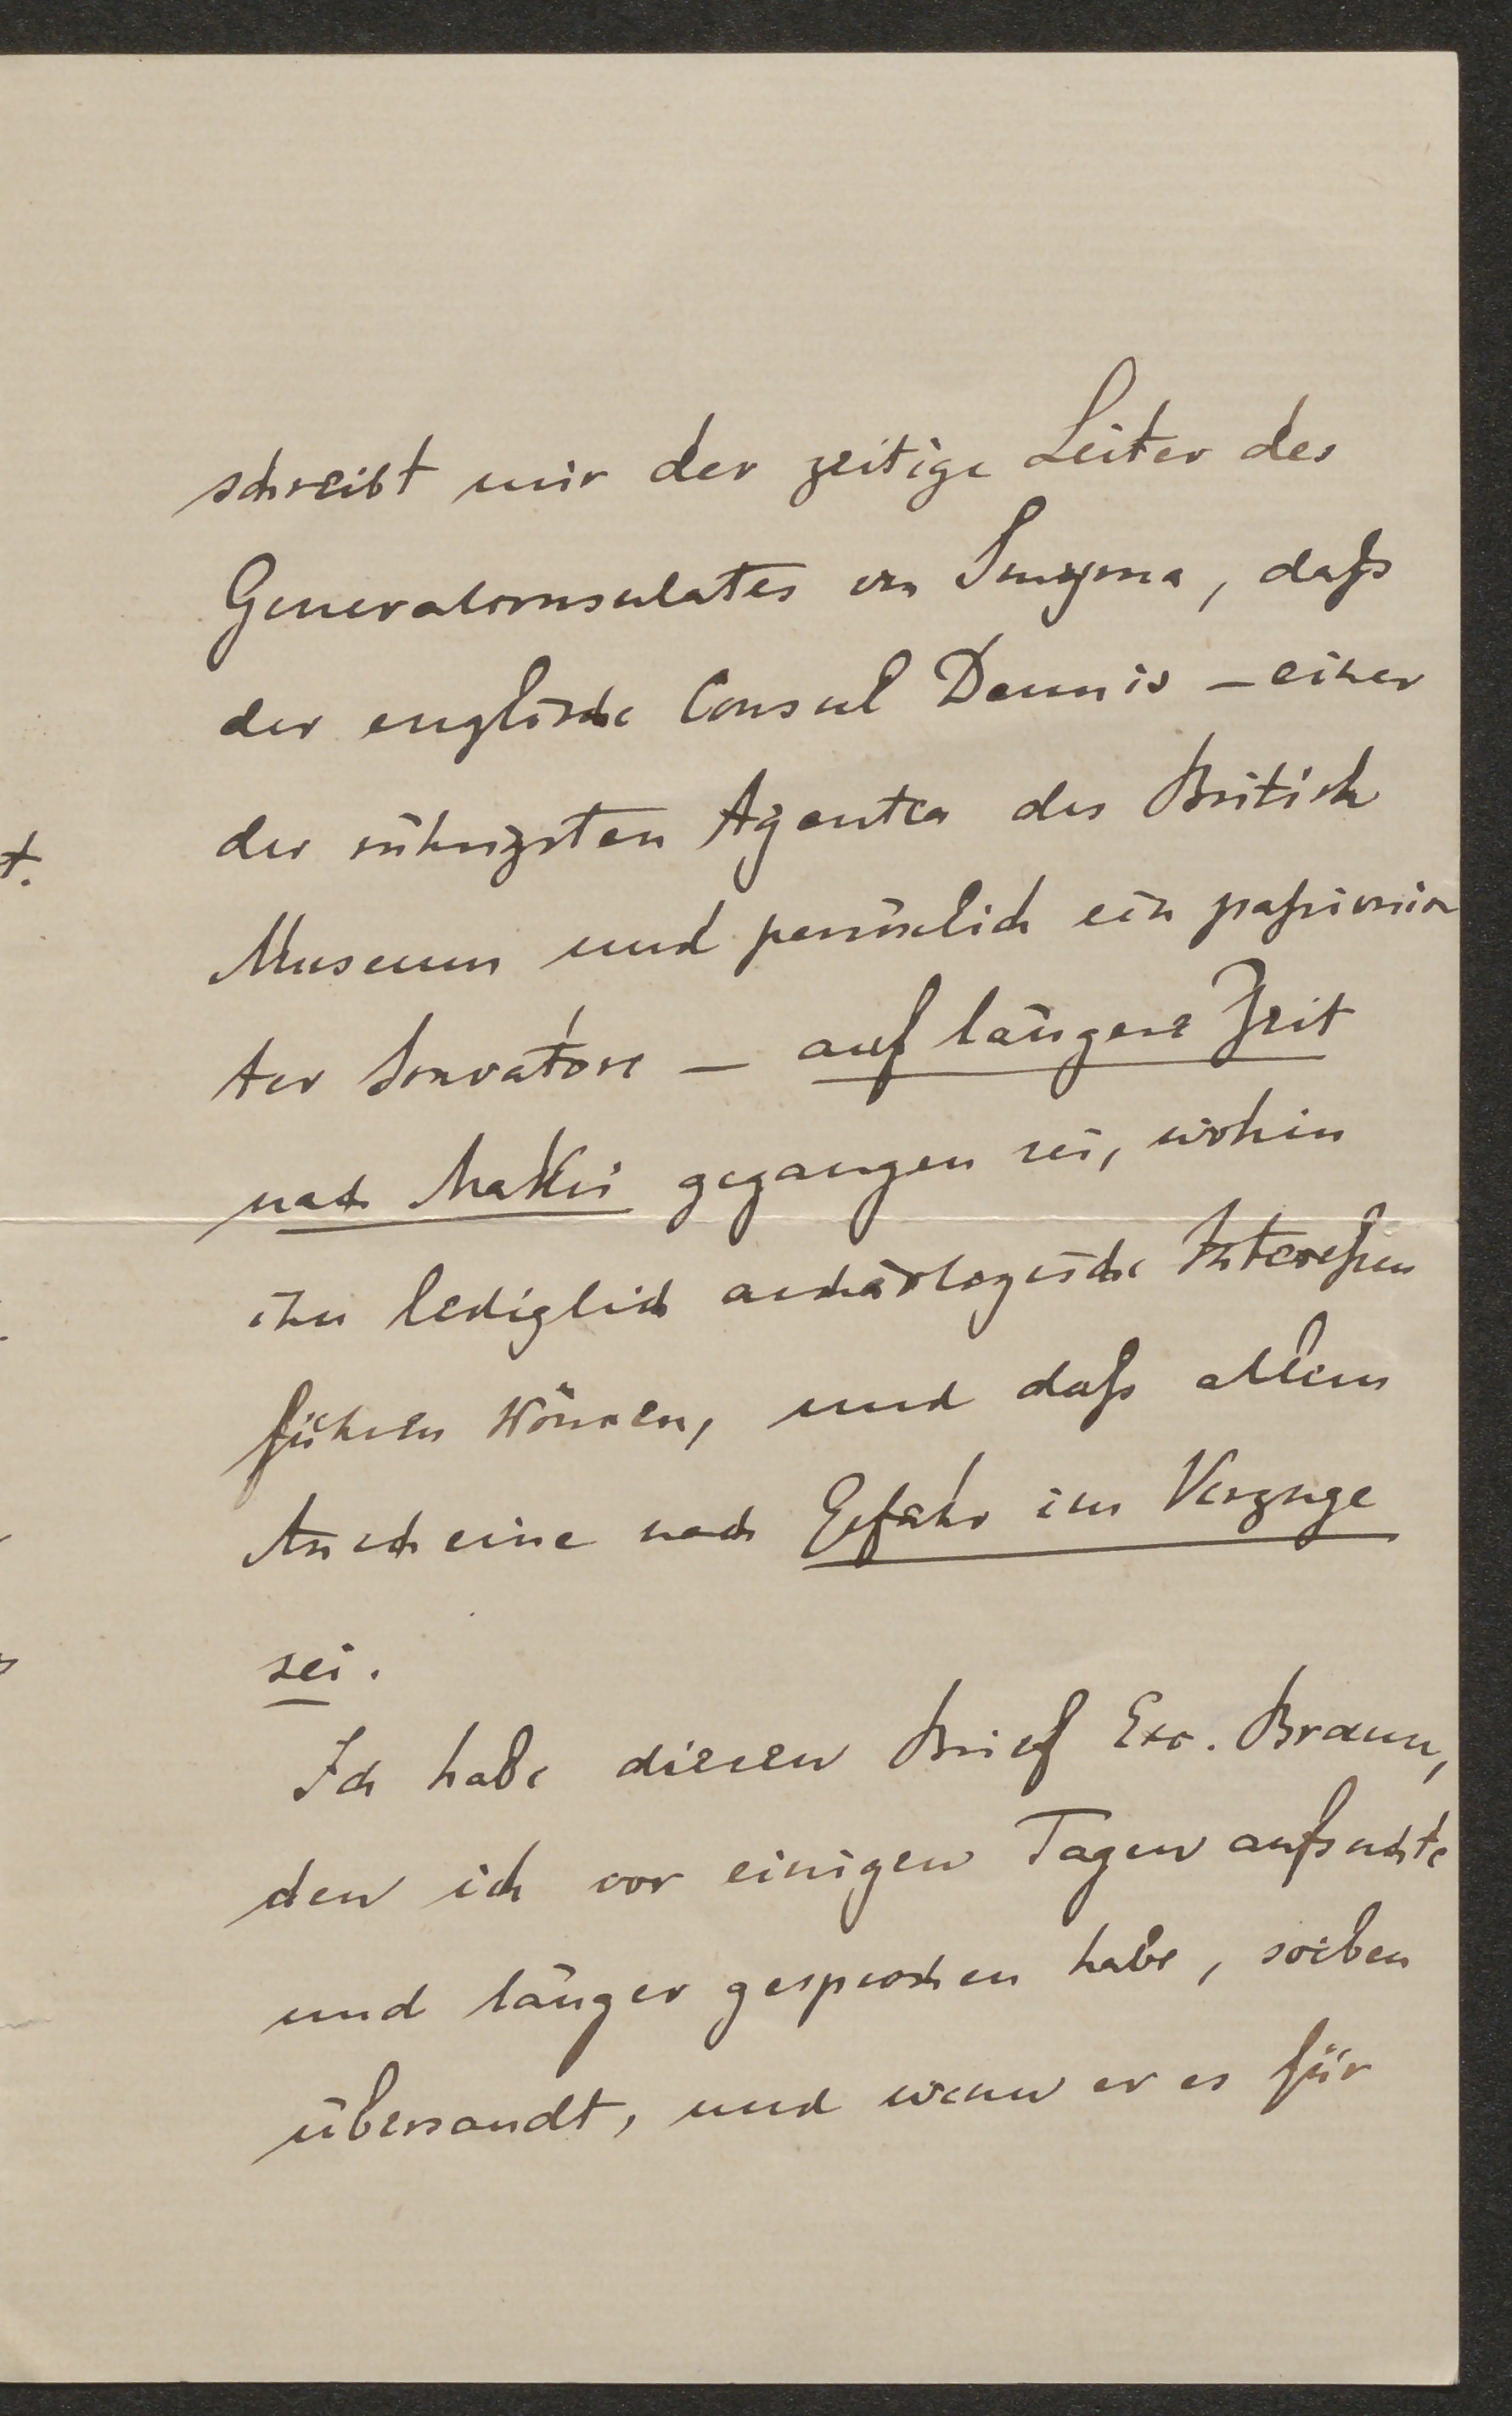 schreibt mir der zeitige Leiter des
Generalconsulates in Smyrna, daß
der englische Consul Dennis – einer
der rührigsten Agenten des British
Museum und persönlich ein passionir
ter Scavatore – auf längere Zeit
nach Makri gegangen sei, wohin
ihn lediglich archäologische Interessen
führen können, und daß allem
Anscheine nach Gefahr im Verzuge
sei.
Ich habe diesen Brief Exc. Braun,
den ich vor einigen Tagen aufsuchte
und länger gesprochen habe, soeben
übersandt, und wenn er es für